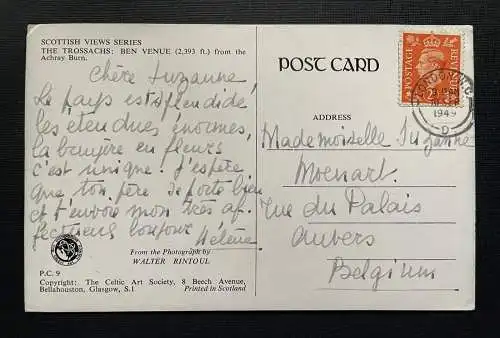 SCOTTISH VIEWS SERIES
THE TROSSACHS: BEN VENUE (2,393 ft.) from the
Achray Burn.
Chère Suzanne
Le pays est splendide
les étendues énormes,
la bruyère en fleurs
c'est unique. J'espère
que ton père se porte bien
et t'envoie mon très af-
fectueux bonjour
Hélène
From the Photograph by
WALTER RINTOUL
P.C. 9
Copyright: The Celtic Art Society, 8 Beech Avenue,
Bellahouston, Glasgow, S.1 Printed in Scotland
POST CARD
ADDRESS
POSTAGE
REVENUE
LONDON
1949
D
Mademoiselle Suzanne
Moenart
Rue du Palais
Anvers
Belgium